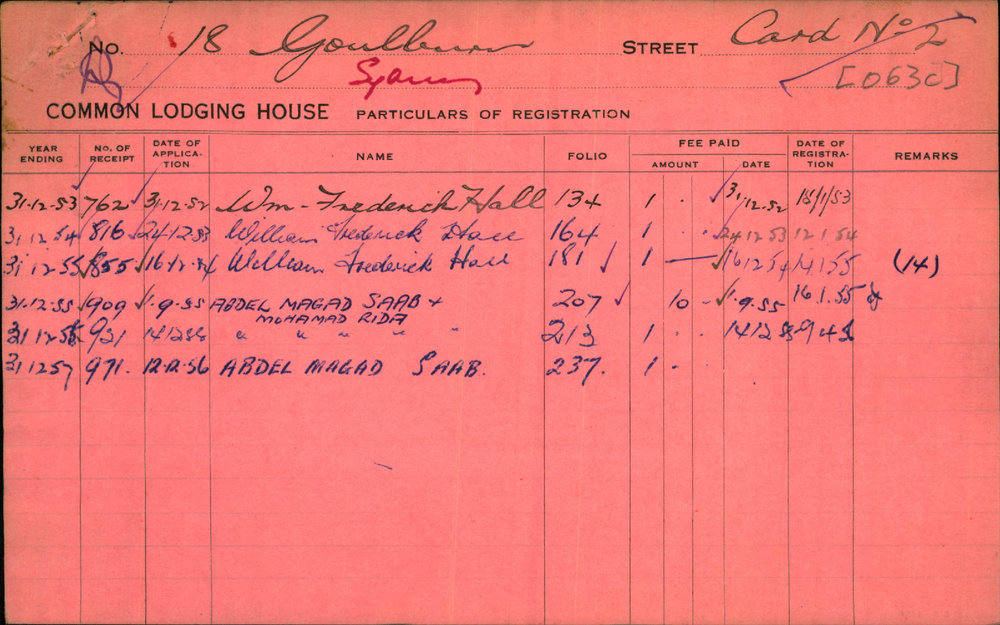 No. 18 Goulburn STREET Card No 2
Sydney [063c]
COMMON LODGING HOUSE PARTICULARS OF REGISTRATION
YEAR ENDING NO. OF RECEIPT DATE OF APPLICA-TION NAME FOLIO FEE PAID AMOUNT DATE DATE OF REGISTRA-TION REMARKS
31.12.53 762 31.12.52 Wm. Frederick Hall 134 1 . . 31.12.52 18/1/53
31.12.54 816 24.12.53 William Frederick Hall 164 1 . . 24.12.53 12.1.54
31.12.55 855 16.12.54 William Frederick Hall 181 1 — 16.12.54 14.1.55 (14)
31.12.55 909 1.9.55 ABDEL MAGAD SAAB + 207 10 - 1.9.55 16.1.55
MOHAMAD RIDA
31.12.56 921 " " " " " 213 1 . .
31.12.57 971. 12.12.56 ABDEL MAGAD SAAB. 237. 1 . .